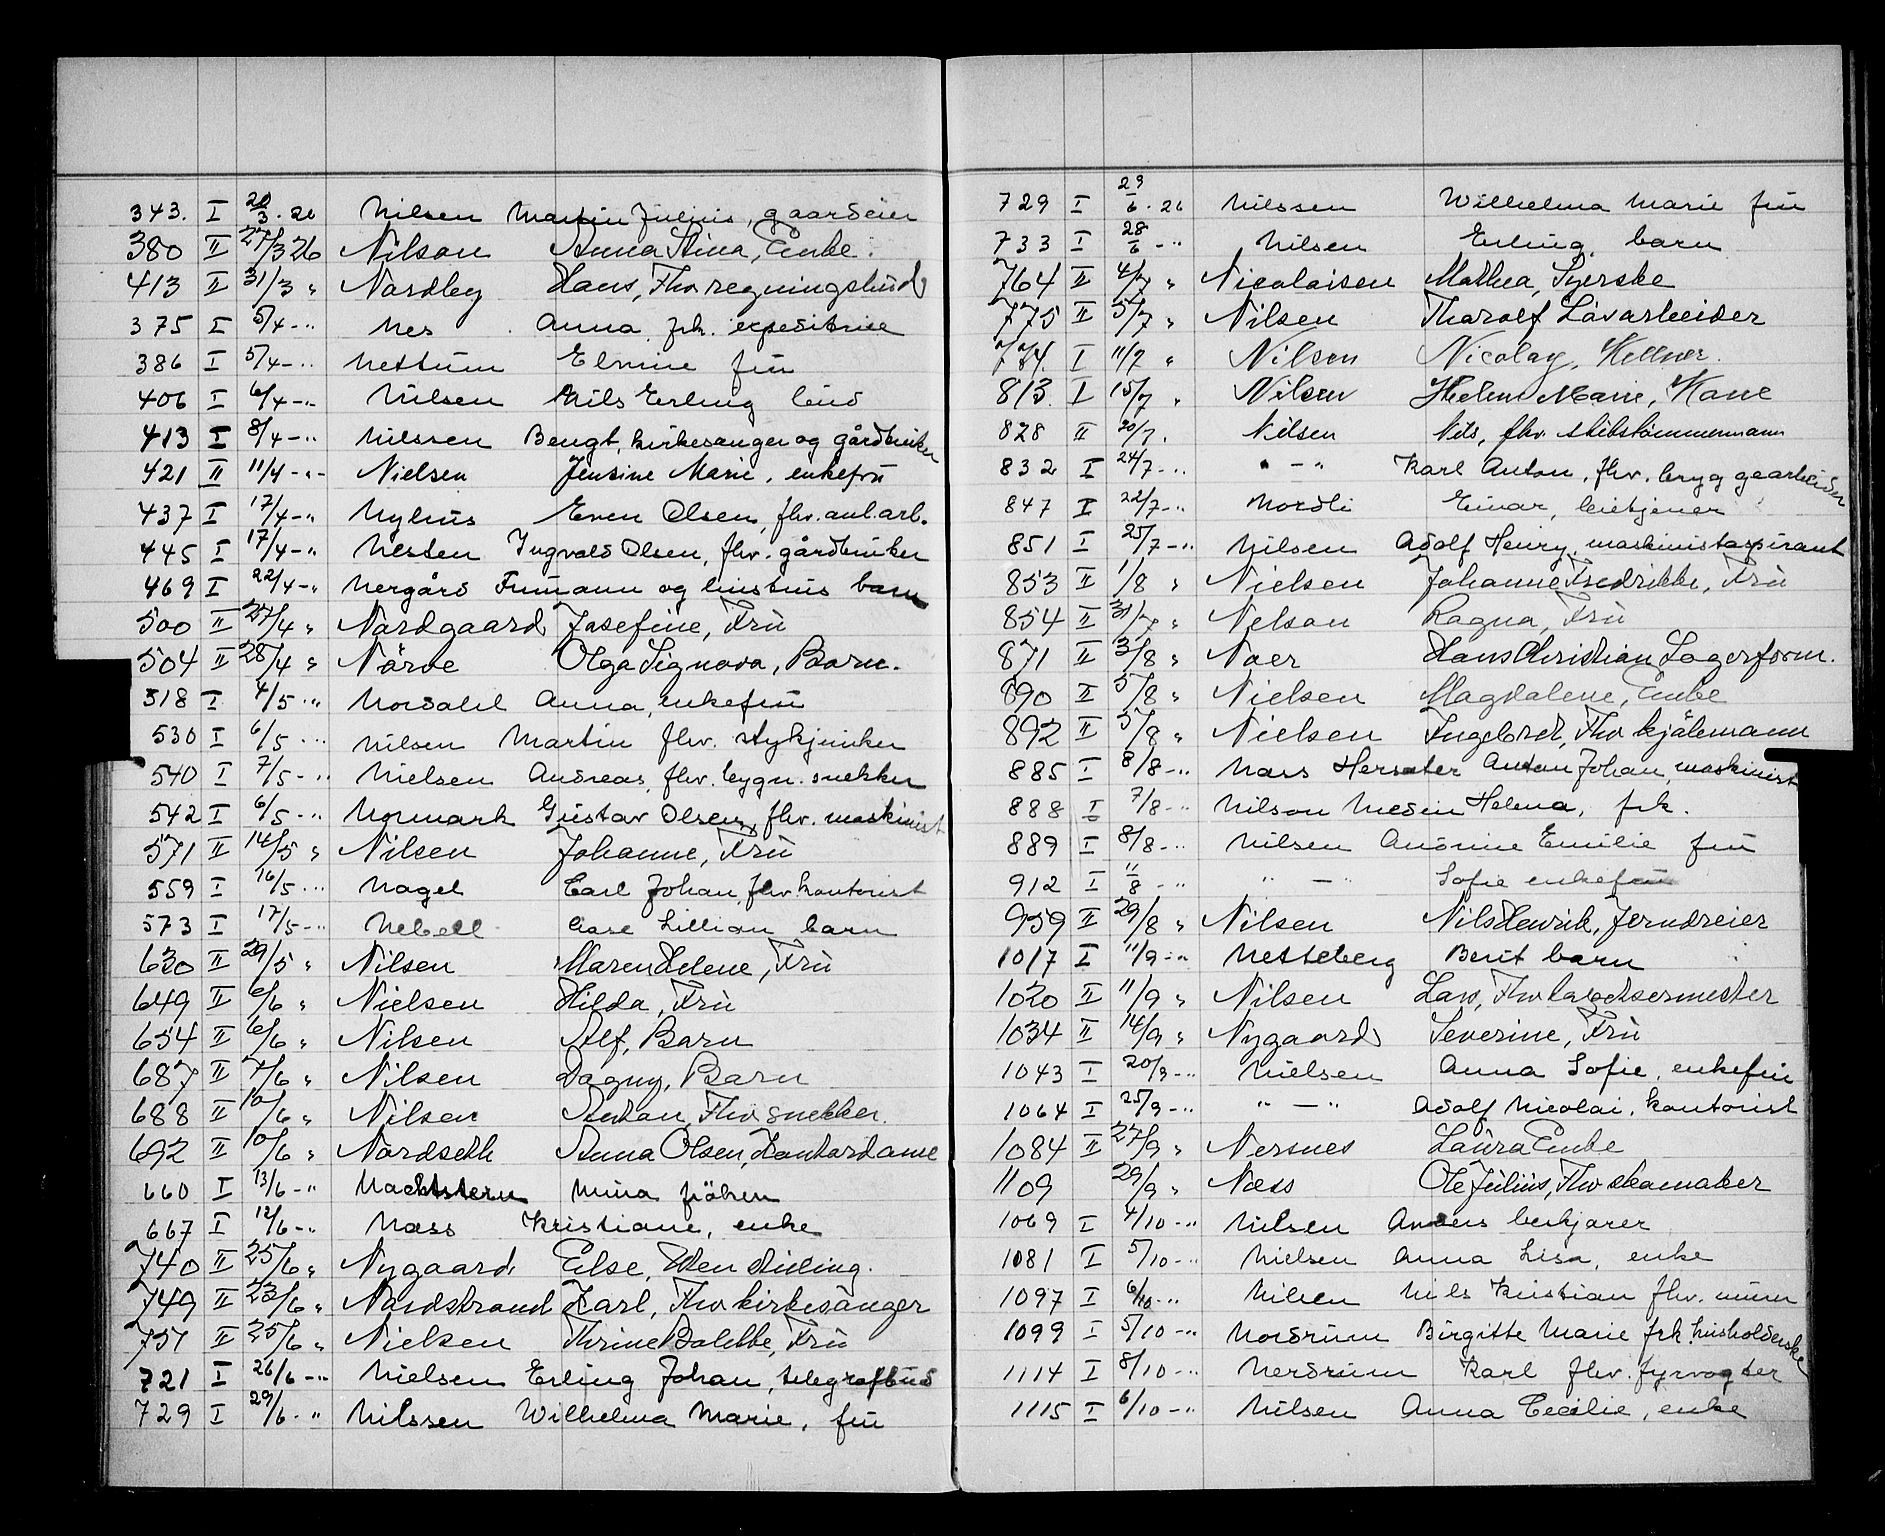 343. I 20/3 . 26 Nilsen Martin Julius, gaardeier
380 II 27/3 26 Nilson Anna Stina, Enke.
413 II 31/3 " Nordby Hans, Fhv regningsbud
375 I 5/4 -" Nes Anna frk. expeditrice
386 I 5/4 -" Nettum Elmine fru
406 I 6/4 -" Nilsen Nils Erling bud
413 I 8/4 -" Nilssen Bengt, kirkesanger og gårdbruker
421 II 11/4 -"- Nielsen Jensine Marie, enkefru
437 I 17/4 -" Nyhus Even Olsen, fhv. anl. arb.
445 I 17/4 -" Nesten Ingvald Olsen, fhv. gårdbruker
469 I 22/4 -" Nergård og hustrus barn
500 II 27/4 " Nordgaard Josefine, Fru
504 II 28/4 " Nörve Olga Signora, Barn.
518 I 4/5 -" Nordahl Anna, enkefru
530 I 6/5 -" Nilsen Martin fhv. stykjunker
540 I 7/5 -" Nielsen Andreas, fhv. bygn. snekker
542 I 6/5 -" Nymark Gustav Olsen, fhv. maskinist
571 II 14/5 " Nilsen Johanne, Fru
559 I 16/5 -" Nagel Carl Johan, fhv kontorist
573 I 17/5 -" Nebell Aase Lillian barn
630 II 29/5 " Nilsen Maren Helene, Fru
649 II 6/6 " Nielsen Hilda, Fru
654 II 6/6 " Nilsen Alf, Barn
687 II 7/6 " Nilsen Dagny, Barn
688 II 10/6 " Nilsen Anton, Fhv snekker.
692 II 10/6 " Nordseth Anna Olsen, Kontordame
660 I 13/6 -" Nachtstern Mina fröken
667 I 12/6 -" Næss Kristiane, enke
740 II 25/6 " Nygaard Else, Uden stilling.
749 II 23/6 " Nordstrand Karl, Fhv kirkesanger
757 II 25/6 " Nielsen Thrine Bolette, Fru
721 I 26/6 -" Nielsen Erling Johan, telegrafbud
729 I 29/6 -" Nilssen Wilhelma Marie, fru
729 I 29/6 . 26 Nilssen Wilhelma Marie fru
733 I 28/6 -" Nilsen Erling, barn
764 II 4/7 " Nicolaisen Mathea, Syerske
775 II 5/7 " Nilsen Tharalf Lovarbeider
774. I 11/7 " Nilsen Nicolay, Kellner.
813. I 15/7 " Nilsen Helene Marie, Kone
828 II 20/7. Nilsen Nils, fhv. skibstömmermann
832 I 24/7 -" " - " Karl Anton, fhv. bryggearbeider
847 I 22/7 -" Nordli Einar, leietjener
851 I 25/7 -" Nilsen Adolf Henry, maskinistaspirant
853 II 1/8 " Nielsen Johanne Fredrikke, Fru
854 II 31/7 " Nelson Ragna, Fru
871 II 3/8 " Noer Hans Christian Lagerform.
890 II 5/8 " Nielsen Magdalene, Enke
892 II 5/8 " Nielsen Ingebret, Fhv kjölemann
885 I 8/8 -" Næss Hersæter Anton Johan, maskinist
888 I 7/8 -" Nilson Helena, frk.
889 I 8/8 -" Nilsen Andrine Emilie fru
912 I 11/8 -" " - " Sofie enkefru
959 II 29/8 " Nilsen Nils Henrik, Jerndreier
1017 I 11/9 -" Netteberg Berit barn
1020 II 11/9 " Nilsen Lars, Fhv
1034 II 14/9 " Nygaard Severine, Fru
1043 I 20/9 -" Nielsen Anna Sofie, enkefru
1064 I 25/9 -" " - " Adolf Nicolai, kontorist
1084 II 27/9 " Nersnes Laura Enke
1109 29/9 " Næss Ole Julius, Fhv skomaker
1069 I 4/10 -" Nilsen Anders
1081 I 5/10 -" Nielsen Anna Lisa, enke
1097 I 6/10 -" Nilsen Nils Kristian fhv. murer
1099 I 5/10 -" Nordrum Birgitte Marie frk husholderske
1114 I 8/10 -" Nerdrum Karl fhv. fyrvogter
1115 I 6/10 -" Nilsen Anna Cecilie, enke